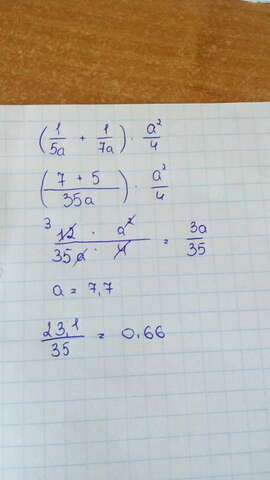 (1/5a + 1/7a) · a²/4
(7 + 5/35a) · a²/4
3 12 · a²/35a · 4 = 3a/35
a = 7,7
23,1/35 = 0.66